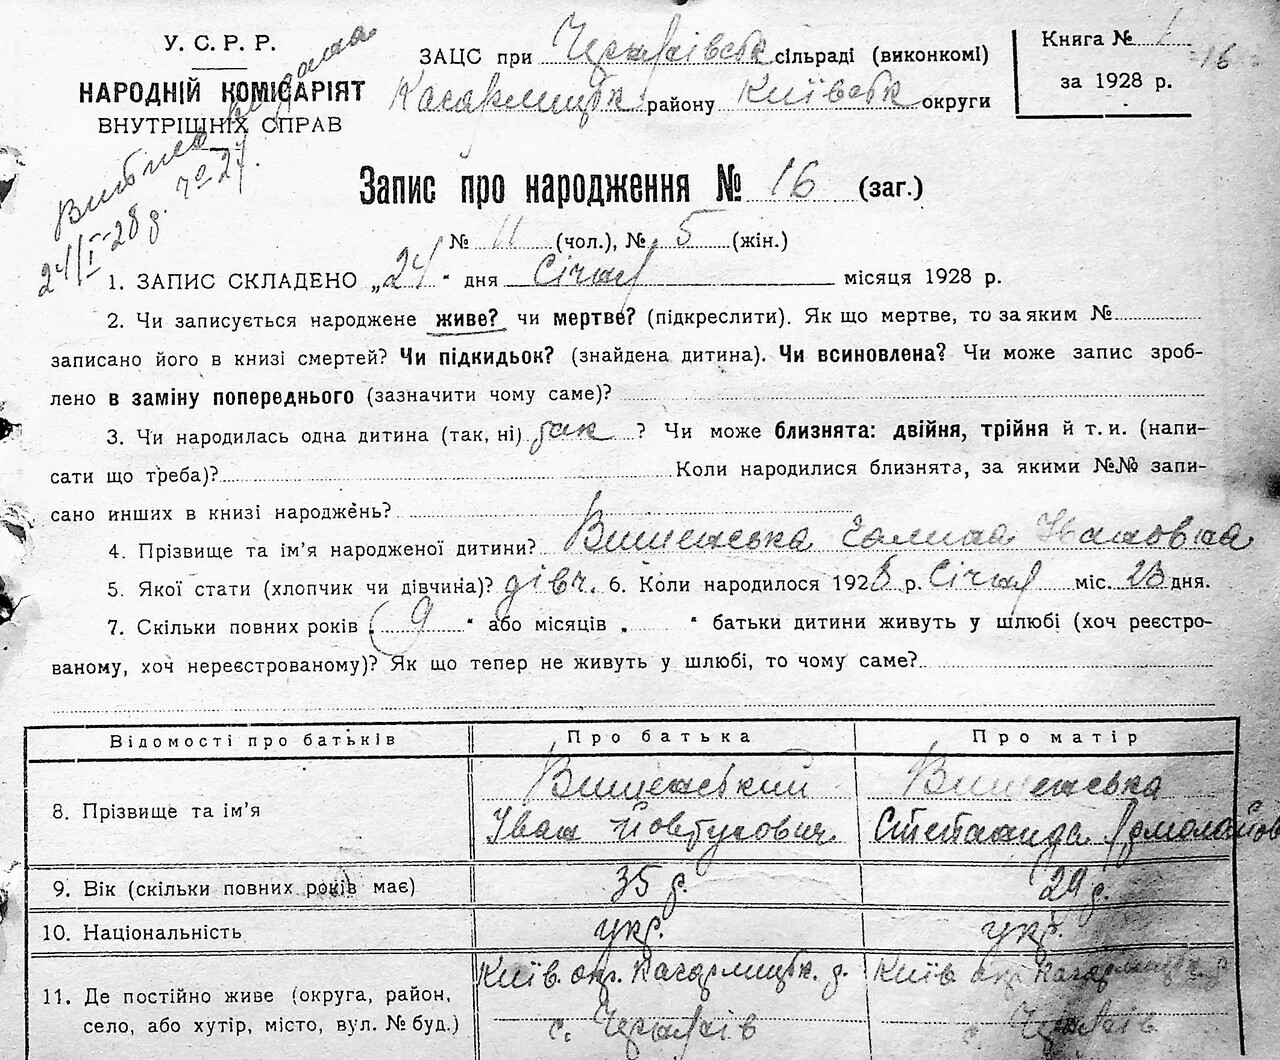 У. С. Р. Р.
НАРОДНІЙ КОМІСАРІЯТ
ВНУТРІШНІХ СПРАВ
24/І-28 р. № 27.
ЗАЦС при сільраді (виконкомі)
Кагарлицьк району Київськ округи
Книга № 1
16
за 1928 р.
Запис про народження № 16 (заг.)
№ 11 (чол.), № 5 (жін.)
1. ЗАПИС СКЛАДЕНО „24“ дня Січня місяця 1928 р.
2. Чи записується народжене живе? чи мертве? (підкреслити). Як що мертве, то за яким №
записано його в книзі смертей? Чи підкидьок? (знайдена дитина). Чи всиновлена? Чи може запис зроб-
лено в заміну попереднього (зазначити чому саме)?
3. Чи народилась одна дитина (так, ні) так ? Чи може близнята: двійня, трійня й т. и. (напи-
сати що треба)? Коли народилися близнята, за якими №№ запи-
сано инших в книзі народжень?
4. Прізвище та ім’я народженої дитини? Вишенська Галина Івановна
5. Якої стати (хлопчик чи дівчина)? дівч. 6. Коли народилося 1928 р. Січня міс. 23 дня.
7. Скільки повних років „9“ або місяців „ “ батьки дитини живуть у шлюбі (хоч реєстро-
ваному, хоч нереєстрованому)? Як що тепер не живуть у шлюбі, то чому саме?
Відомості про батьків Про батька Про матір
8. Прізвище та ім’я Вишенський Вишенська
Іван Степанида
9. Вік (скільки повних років має) 35 р. 29 р.
10. Національність укр. укр.
11. Де постійно живе (округа, район, Київ. окр. Кагарлицьк. р. Київ окр Кагарлицьк. р
село, або хутір, місто, вул. № буд.) с. с.